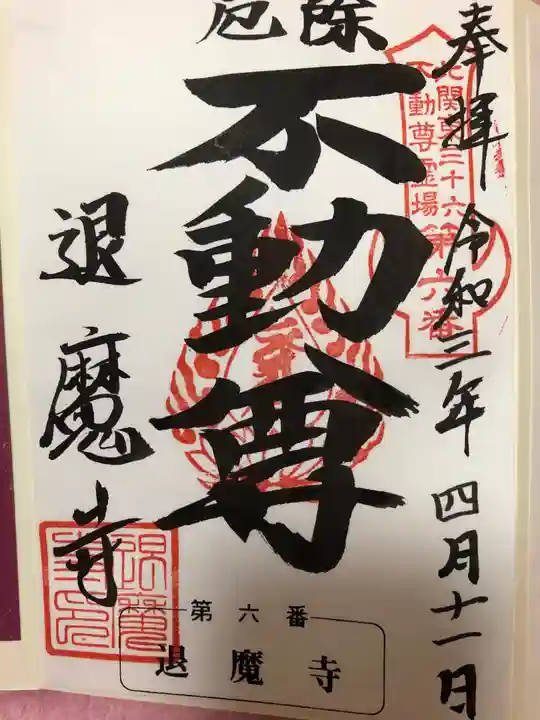 奉拝 令和三年 四月十一日
北関東三十六
不動尊霊場第六番
厄除
不動尊
退魔寺
第六番
退魔寺